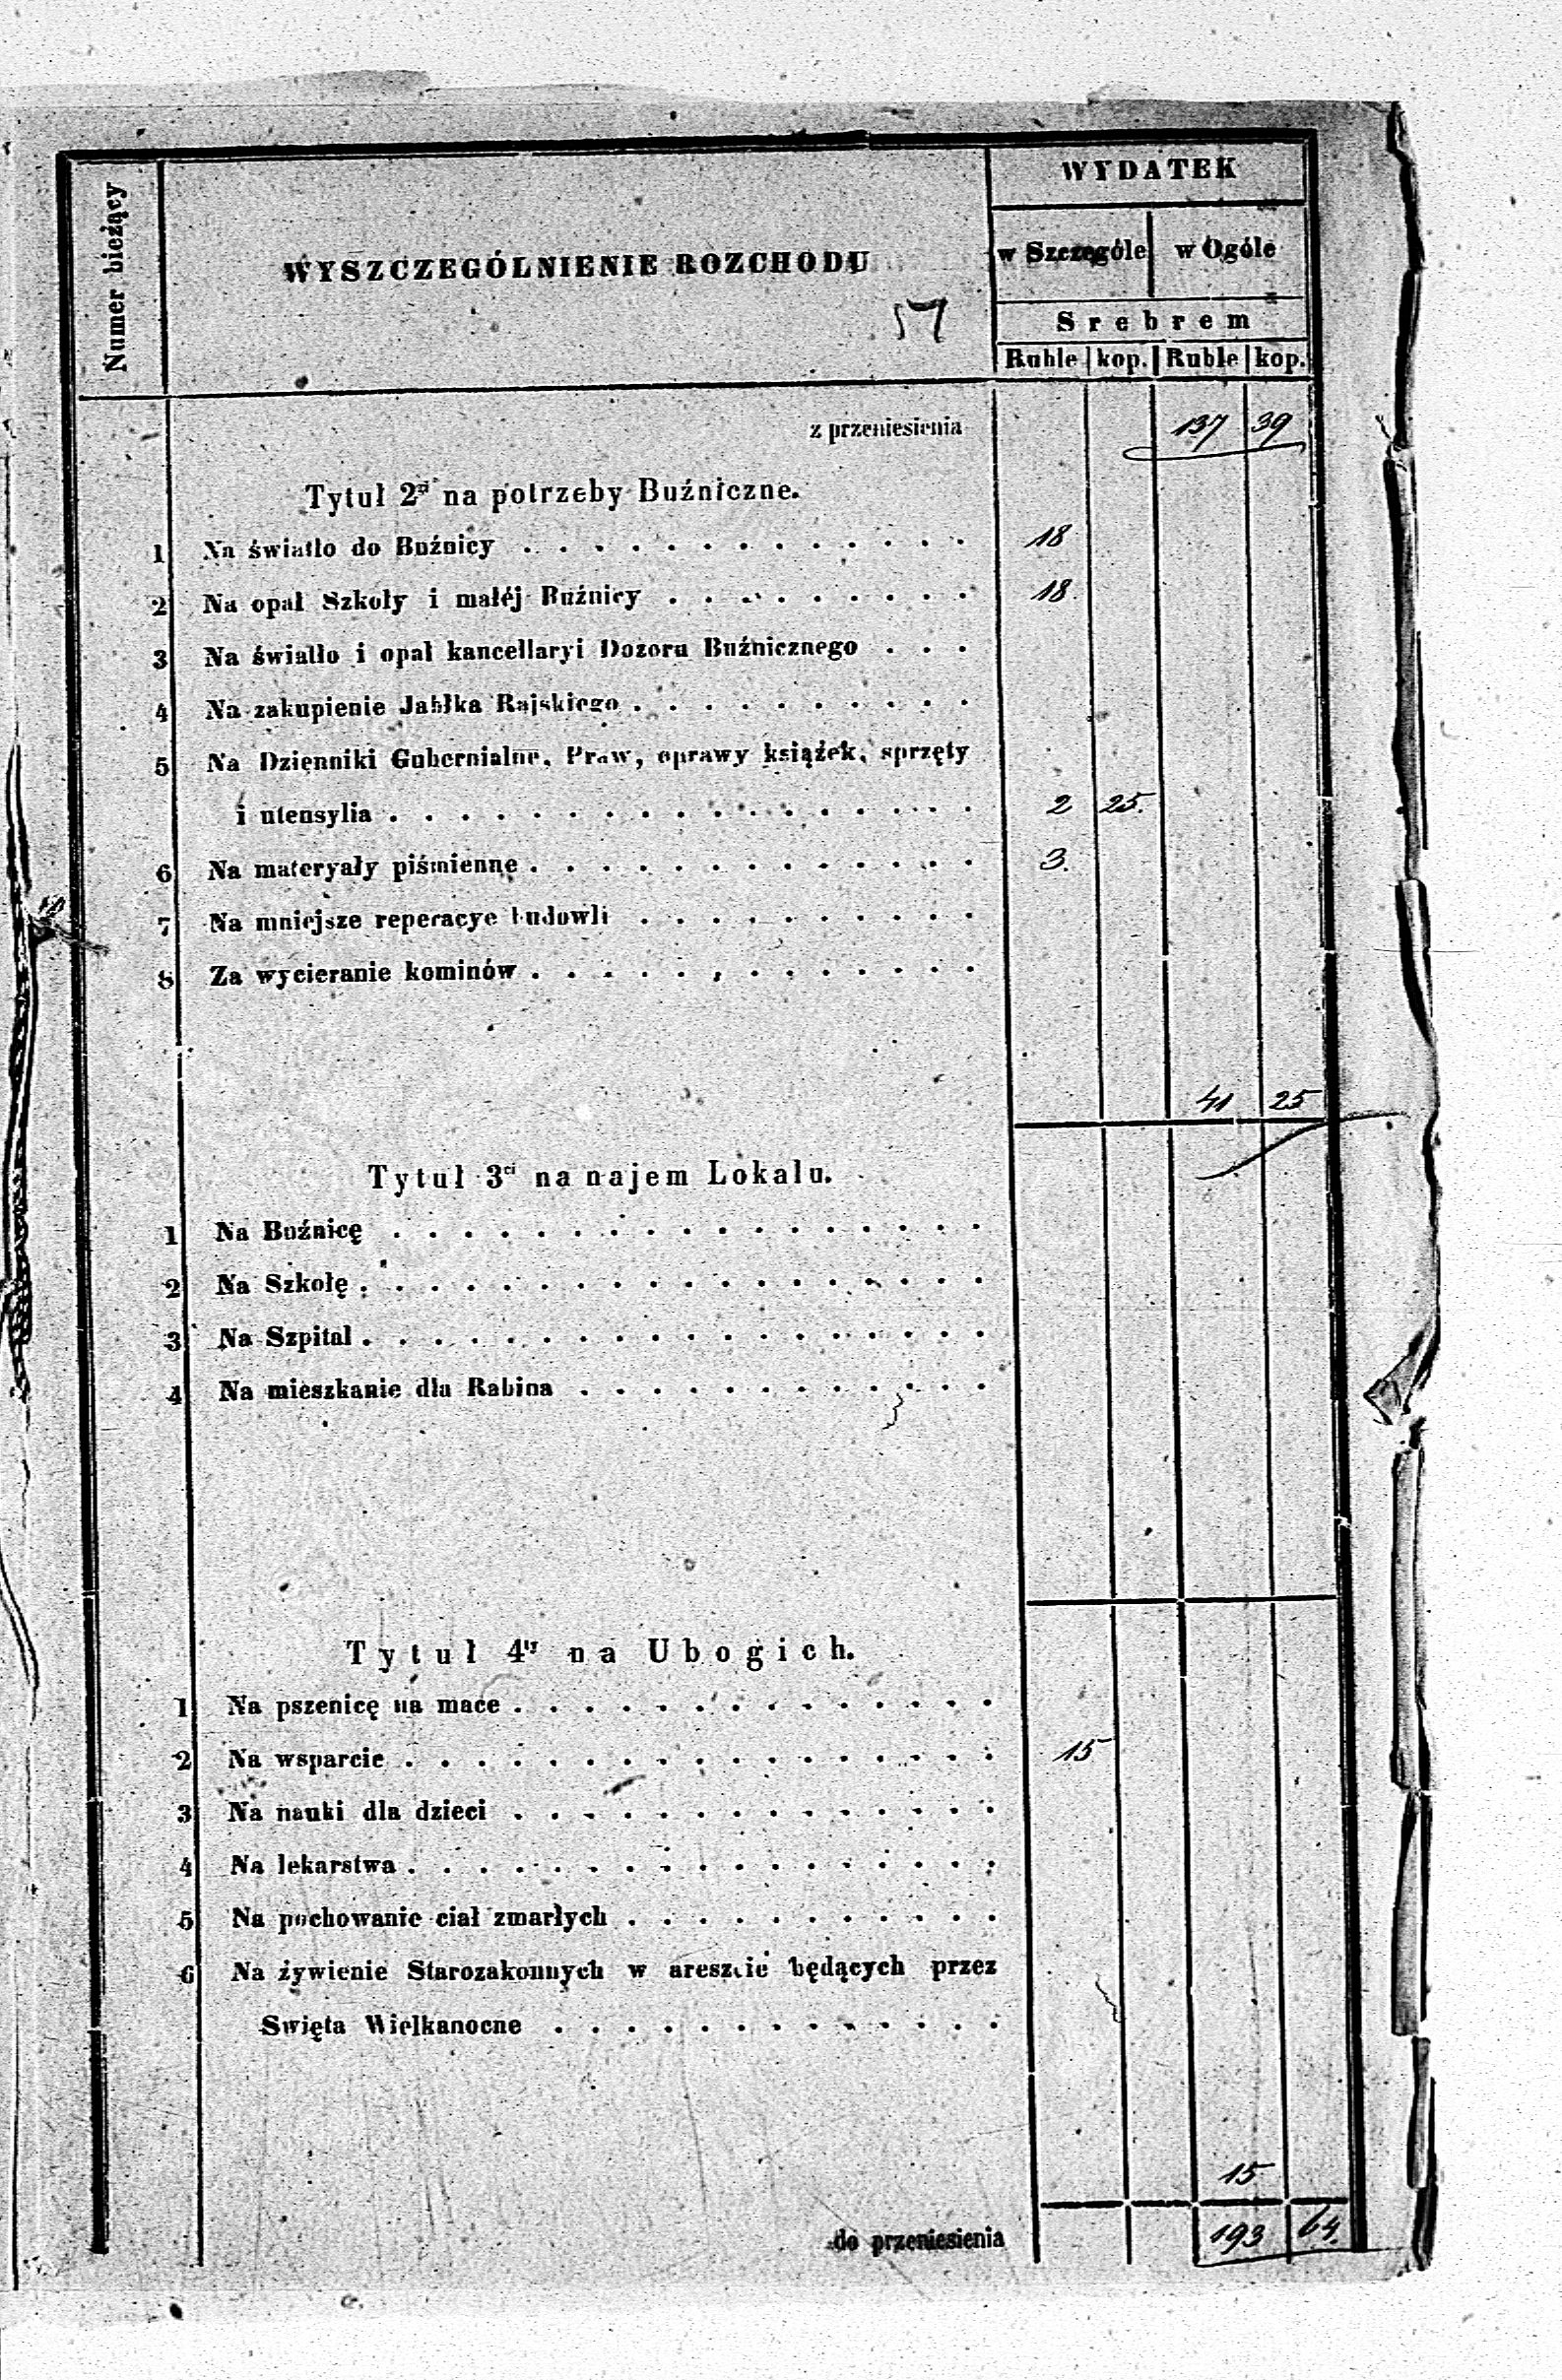 Numer bieżący
WYSZCZEGÓLNIENIE ROZCHODU
57
WYDATEK
w Szczególe w Ogóle
Srebrem
Ruble kop. Ruble kop.
z przeniesienia 137 39
Tytuł 2gi na potrzeby Buźniczne.
1 Na światło do Buźnicy 18
2 Na opał Szkoły i małéj Buźnicy 18.
3 Na światło i opał kancellaryi Dozoru Buźnicznego
4 Na zakupienie Jabłka Rajskiego
5 Na Dzienniki Gubernialne, Praw, oprawy książek, sprzęty
i utensylia 2 25.
6 Na materyały piśmienne 3.
7 Na mniejsze reperacye budowli
8 Za wycieranie kominów
41 25
Tytuł 3ci na najem Lokalu.
1 Na Buźnicę
2 Na Szkołę
3 Na Szpital
4 Na mieszkanie dla Rabina
Tytuł 4ty na Ubogich.
1 Na pszenicę na mace
2 Na wsparcie 15
3 Na nauki dla dzieci
4 Na lekarstwa
5 Na pochowanie ciał zmarłych
6 Na żywienie Starozakonnych w areszcie będących przez
Swięta Wielkanocne
15
do przeniesienia 193 64.